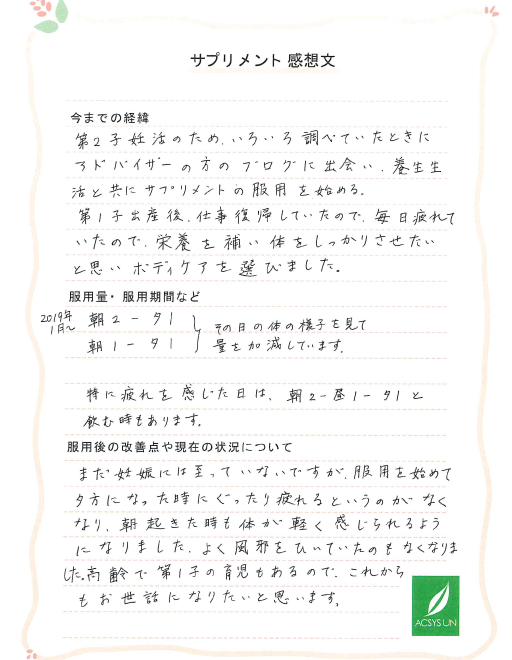 サプリメント感想文
今までの経緯
第2子妊活のため、いろいろ調べていたときに
アドバイザーの方のブログに出会い、養生生
活と共にサプリメントの服用を始める。
第1子出産後、仕事復帰していたので、毎日疲れて
いたので、栄養を補い体をしっかりさせたい
と思いボディケアを選びました。
服用量・服用期間など
2019年
1月~
朝2-夕1
朝1-夕1
その日の体の様子を見て
量を加減しています。
特に疲れを感じた日は、朝2-昼1-夕1と
飲む時もあります。
服用後の改善点や現在の状況について
まだ妊娠には至っていないですが、服用を始めて
夕方になった時にぐったり疲れるというのがなく
なり、朝起きた時も体が軽く感じられるよう
になりました。よく風邪をひいていたのもなくなりま
した。高齢で第1子の育児もあるので、これから
もお世話になりたいと思います。
ACSYS UN